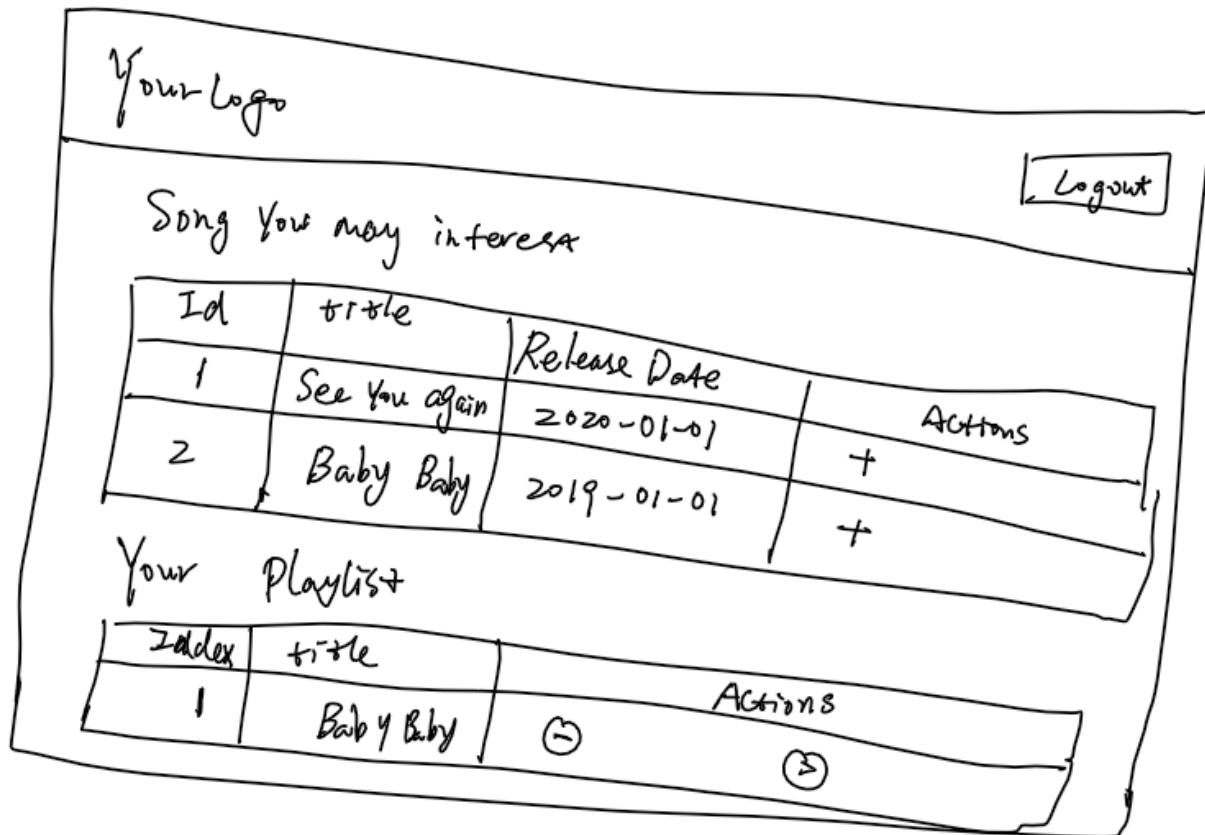 Your Logo
Logout
Song You may interest
Id title Release Date Actions
1 See You again 2020-01-01 +
2 Baby Baby 2019-01-01 +
Your Playlist
Index title Actions
1 Baby Baby - >